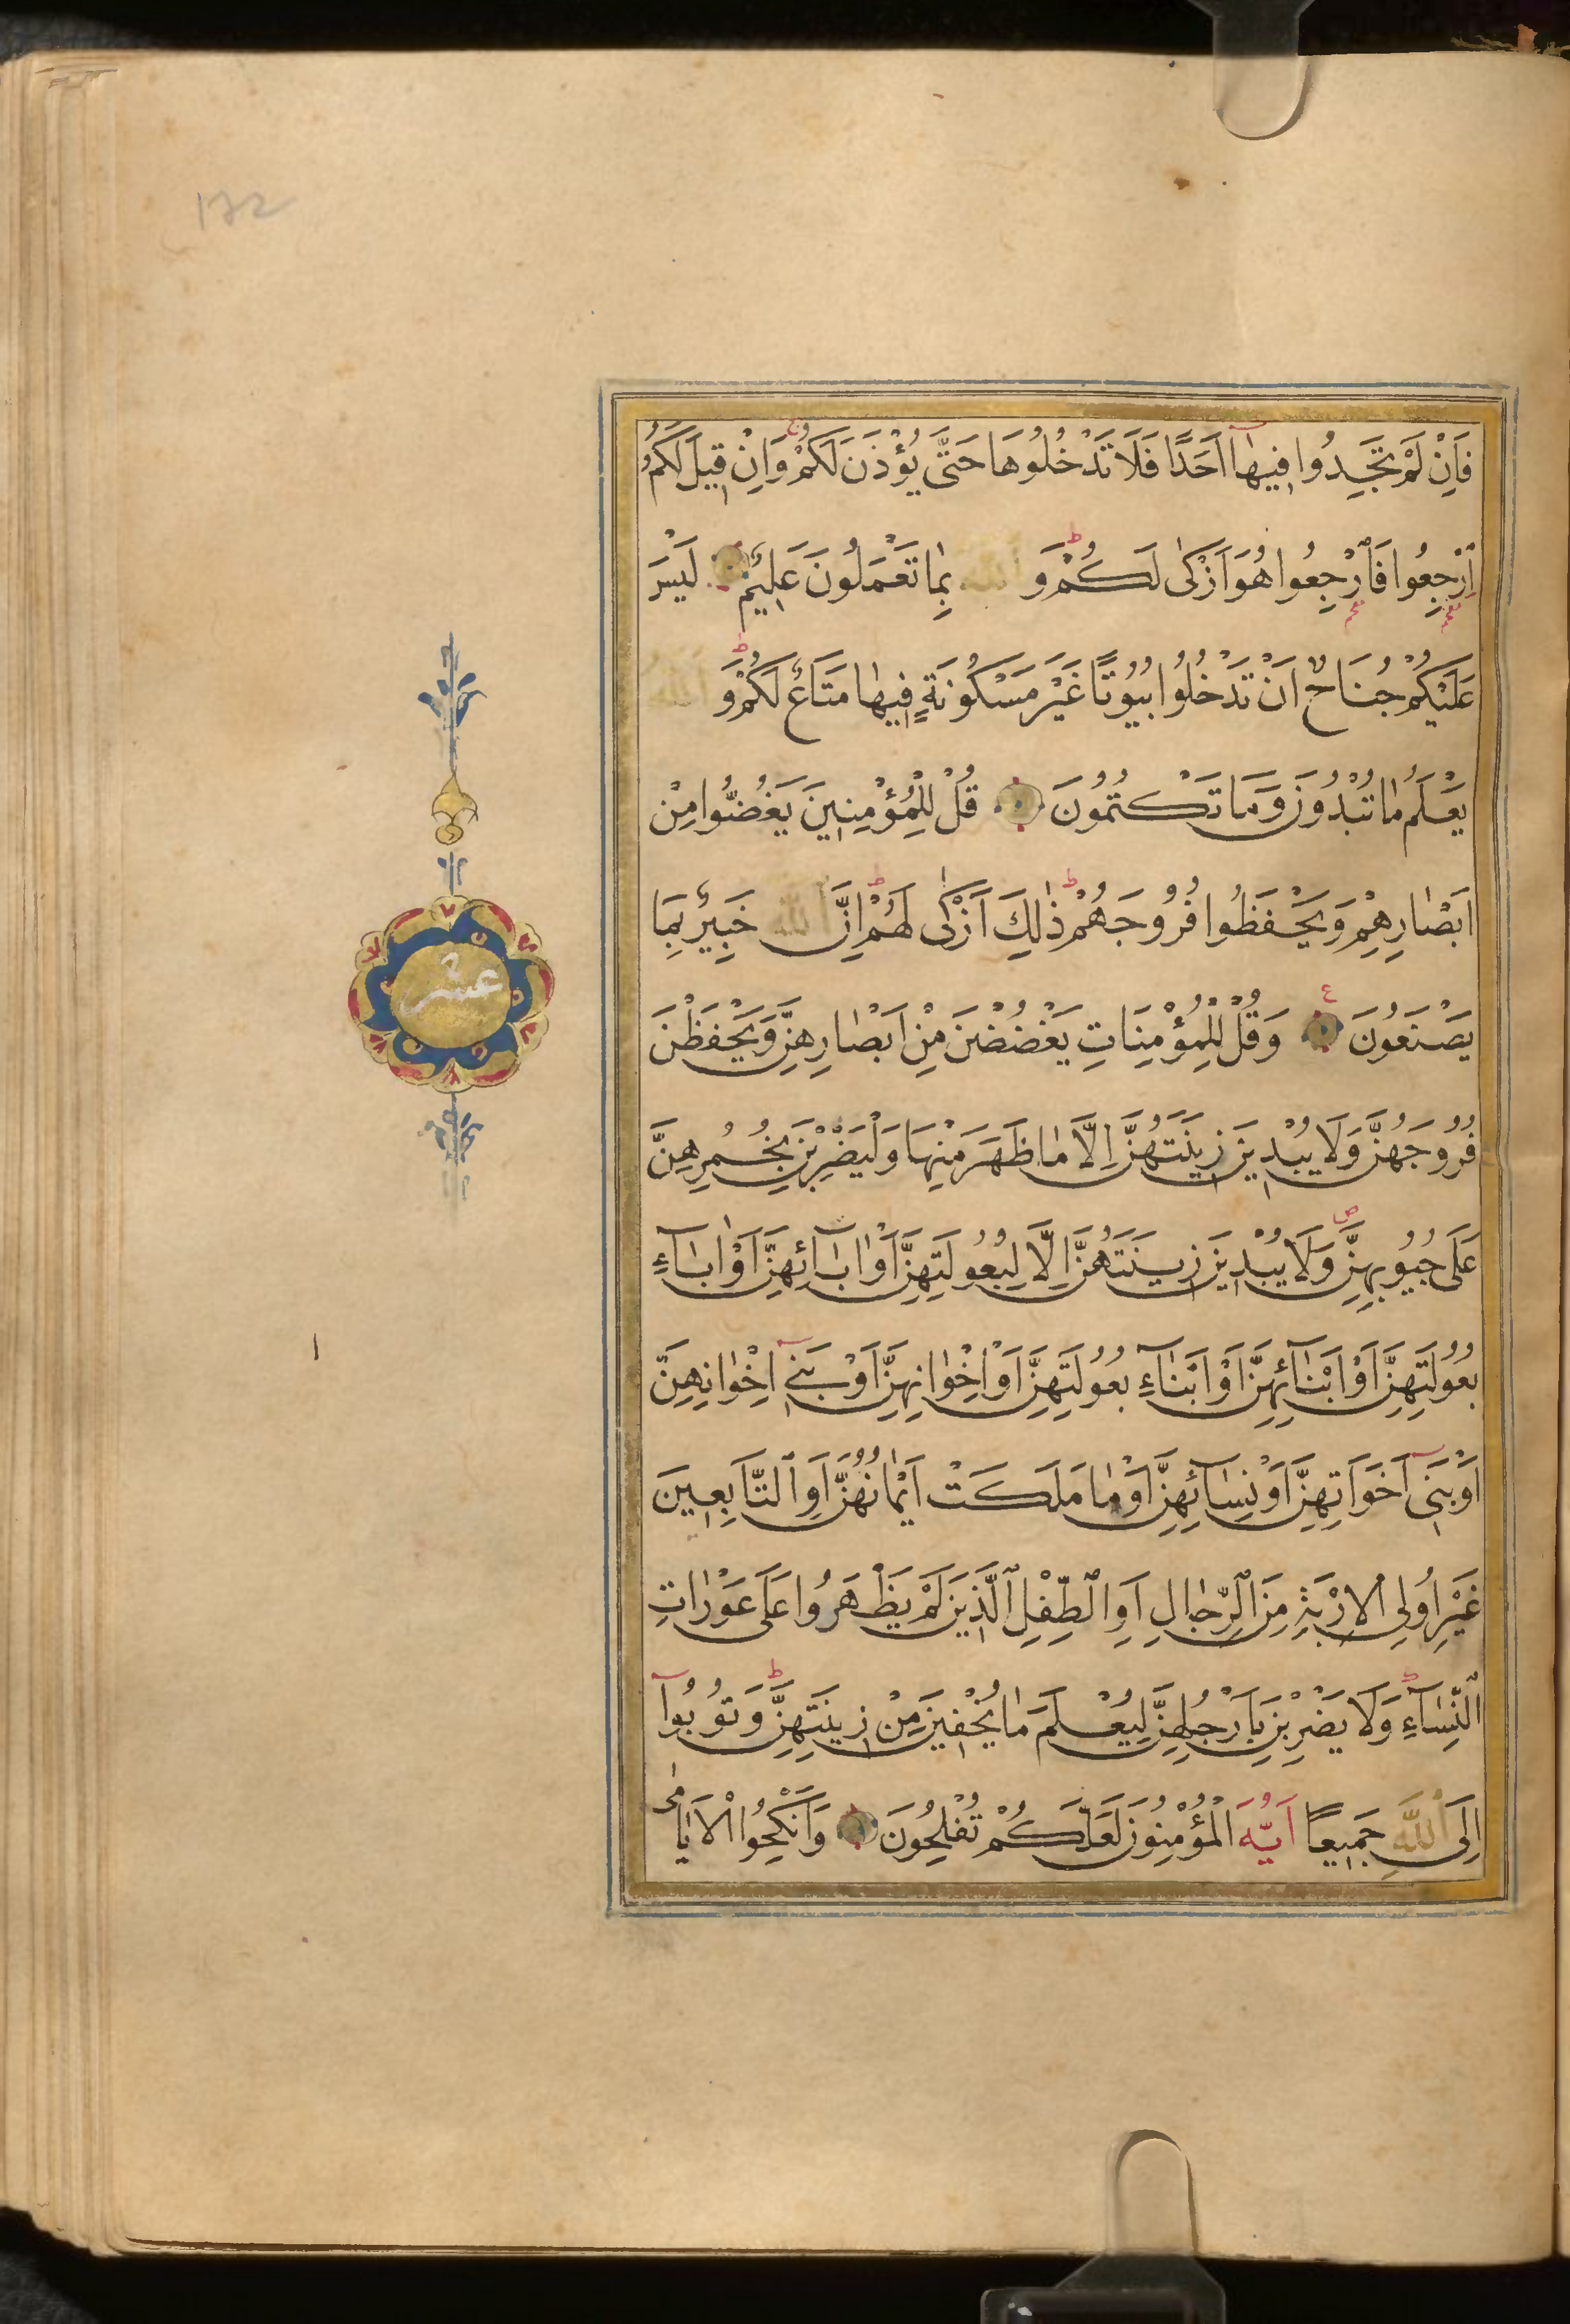 172
فَاِنْ لَمْ تَجِدُوا فِيهٰٓا اَحَدًا فَلَا تَدْخُلُوهَا حَتّٰى يُؤْذَنَ لَكُمْ ۚ وَاِنْ قِيلَ لَكُمُ
ارْجِعُوا فَارْجِعُوا هُوَ اَزْكٰى لَكُمْ ۜ وَ اللّٰهُ بِمٰا تَعْمَلُونَ عَلِيمٌ لَيْسَ
عَلَيْكُمْ جُنَاحٌ اَنْ تَدْخُلُوا بُيُوتًا غَيْرَ مَسْكُونَةٍ فِيهٰا مَتَاعٌ لَكُمْ وَ اللّٰهُ
يَعْلَمُ مٰا تُبْدُونَ وَمَا تَكْتُمُونَ قُلْ لِلْمُؤْمِنِينَ يَغُضُّوا مِنْ
اَبْصٰارِهِمْ وَيَحْفَظُوا فُرُوجَهُمْ ط ذٰلِكَ اَزْكٰى لَهُمْ ط اِنَّ اللّٰهَ خَبِيرٌ بِمَا
يَصْنَعُونَ ع وَقُلْ لِلْمُؤْمِنَاتِ يَغْضُضْنَ مِنْ اَبْصٰارِهِنَّ وَيَحْفَظْنَ
فُرُوجَهُنَّ وَلَا يُبْدِينَ زِينَتَهُنَّ اِلَّا مٰا ظَهَرَ مِنْهَا وَلْيَضْرِبْنَ بِخُمُرِهِنَّ
عَلٰى جُيُوبِهِنَّ ص وَلَا يُبْدِينَ زِينَتَهُنَّ اِلَّا لِبُعُولَتِهِنَّ اَوْ اٰبَٓائِهِنَّ اَوْ اٰبَٓاءِ
بُعُولَتِهِنَّ اَوْ اَبْنَٓائِهِنَّ اَوْ اَبْنَٓاءِ بُعُولَتِهِنَّ اَوْ اِخْوٰانِهِنَّ اَوْ بَنِٓي اِخْوٰانِهِنَّ
اَوْ بَنِٓى اَخَوَاتِهِنَّ اَوْ نِسَٓائِهِنَّ اَوْ مٰا مَلَكَتْ اَيْمٰانُهُنَّ اَوِ التَّابِعِينَ
غَيْرِ اُولِى الْاِرْبَةِ مِنَ الرِّجٰالِ اَوِ الطِّفْلِ الَّذِينَ لَمْ يَظْهَرُوا عَلٰى عَوْرٰاتِ
النِّسَٓاءِ ط وَلَا يَضْرِبْنَ بِاَرْجُلِهِنَّ لِيُعْلَمَ مٰا يُخْفِينَ مِنْ زِينَتِهِنَّ ط وَتُوبُوٓا
اِلَى اللّٰهِ جَمِيعًا اَيُّهَ الْمُؤْمِنُونَ لَعَلَّكُمْ تُفْلِحُونَ وَاَنْكِحُوا الْاَيَامٰى
عشر
١